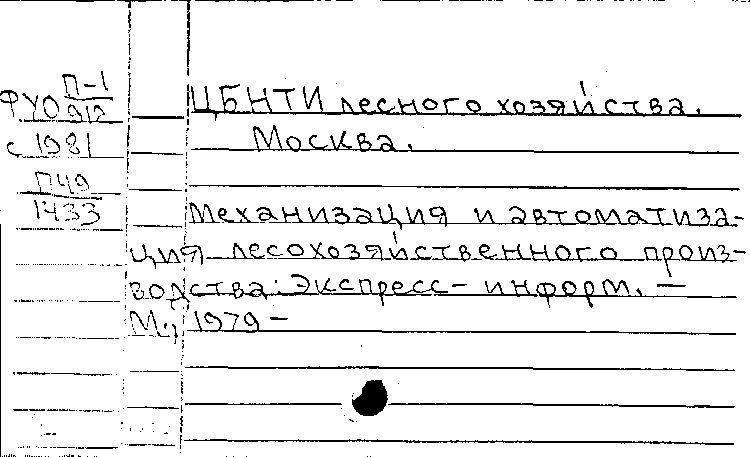 П-1
ФУО 912
с 1981
П49
1433
ЦБНТИ лесного хозяйства.
Москва.
Механизация и автоматиза-
ция лесохозяйственного произ-
водства: Экспресс-информ. —
М., 1979 —